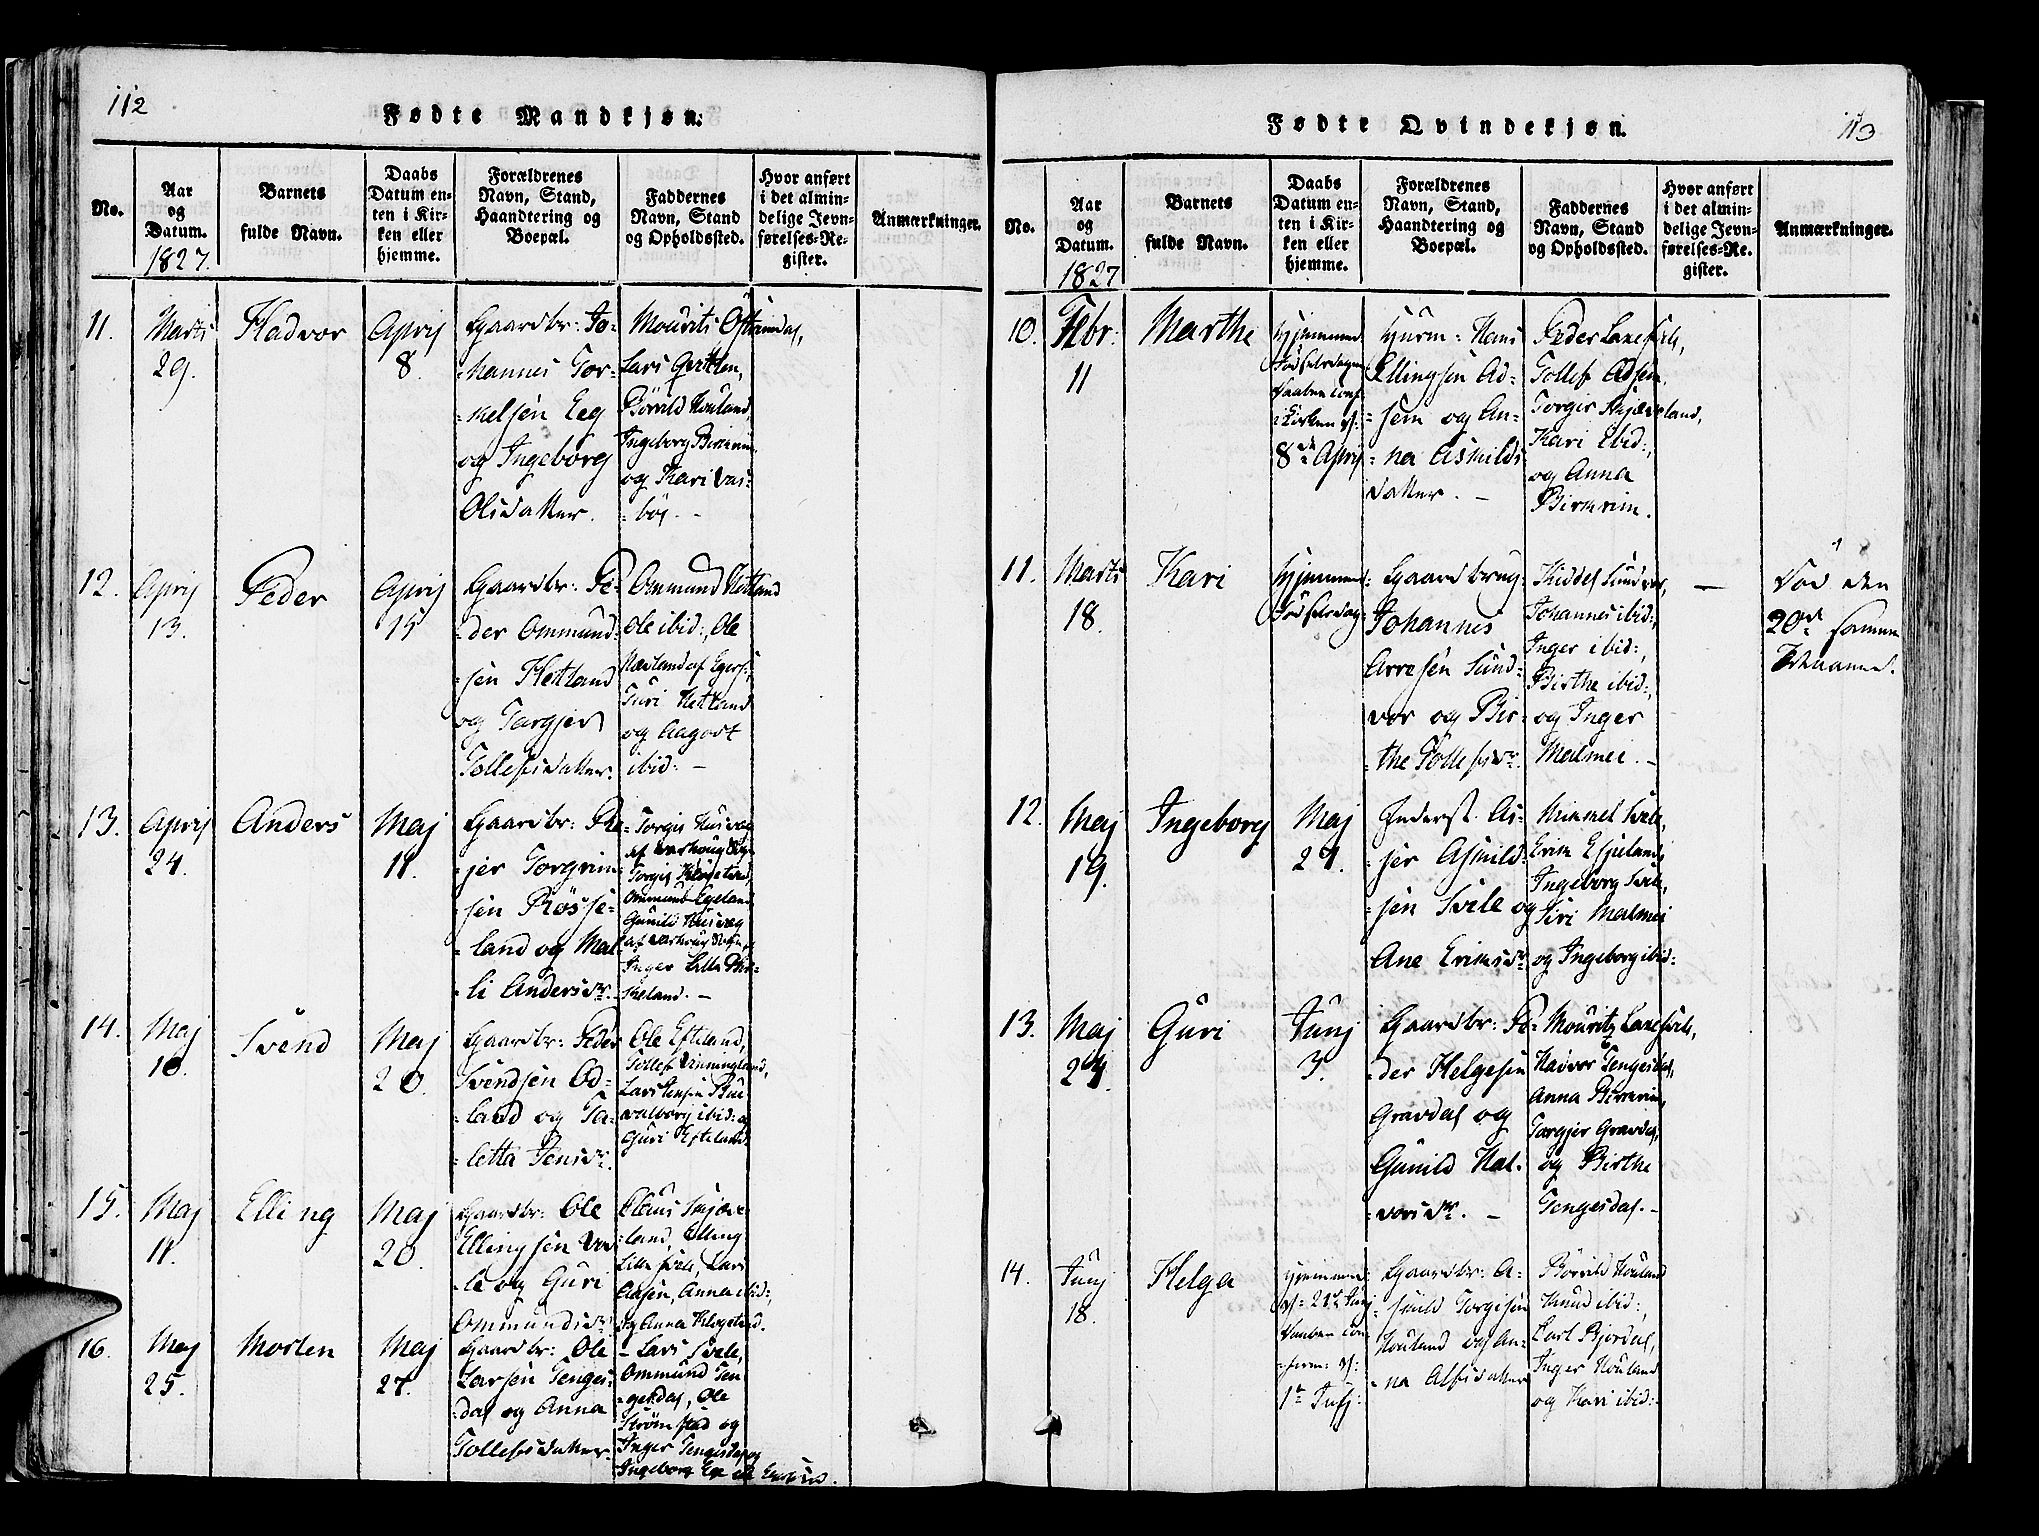 112
Fødte Mandkjøn.
No.
Aar og Datum.
1827.
Barnets fulde Navn.
Daabs Datum enten i Kirken eller hjemme.
Forældrenes Navn, Stand, Haandtering og Boepæl.
Faddernes Navn, Stand og Opholdssted.
Hvor anført i det almindelige Jevnførelses-Register.
Anmærkninger.
11.
Marts
29.
Hadvor
Apriis
8.
Gaardbr: Jo-
hannes Tor-
kelsen Eeg
og Ingeborg
Olisdatter.
Mourits Øfstendal,
Lars Gjertsen,
Børild Houland,
Ingeborg Birkrem
og Kari Vas-
bøe. -
12.
Apriis
13.
Peder
Apriis
15
Gaardbr: Pe-
der Ommund-
sen Hetland
og Targjer
Tollefsdatter.
Ommund Hetland
Ole ibid:, Ole
af Egers:,
Guri Hetland
og Aagodt
ibid: -
13.
Apriis
24.
Anders
Maj
11.
Gaardbr: Re-
jer Torgrim-
sen Røssje-
land og Mal-
li Andersdr.
Torgis Husveg
Torgis
Ommund Egeland
Gunild Husveg
Inger Lille
14.
Maj
10.
Svend
Maj
20.
Gaardbr: Peder
Svendsen Od-
land og Ta-
letta Jensdr.
Ole Efteland,
Tollef Vinningland,
Lars Jensen Bue
Valborg ibid: og
Guri Efteland.
15.
Maj
11.
Elling
Maj
20.
Gaardbr: Ole
Ellingsen
og Guri
Ommundsdr.
Claus Skjæve-
land, Elling
Lille Svele, Lars
Adsen, Anna ibid:,
og Anna Klogetvedt.
16.
Maj
25.
Morten
Maj
27.
Gaardbr: Ole
Larsen Tenges-
dal og Anna
Tollefsdatter.
- Lars Svele,
Ommund Ten-
gesdal, Ole
Strømstad og
Inger Tengesdal og
Ingeborg Ege
113
Fødte Qvindekjøn.
No.
Aar og Datum.
1827
Barnets fulde Navn.
Daabs Datum enten i Kirken eller hjemme.
Forældrenes Navn, Stand, Haandtering og Boepæl.
Faddernes Navn, Stand og Opholdssted.
Hvor anført i det almindelige Jevnførelses-Register.
Anmærkninger.
10.
Febr.
11
Marthe
Hjemme
Fødselsdagen
Daaben conf.
i Kirken d:
8de Apriis
Huusm: Hans
Ellingsen Ad-
sem og An-
na Asmilds
datter. -
Peder Laxesvele,
Tollef Adsem.
Torgir Skjæveland,
Kari ibid:,
og Anna
Birkrem.
11.
Marts
18.
Kari
Hjemme
Fødselsdag
Gaardbrug:
Johannes
Arresen Sund-
vor og Bir-
the Tollefsdr.
Kiddel Sundvor,
Johannes ibid:,
Inger ibid:,
Birthe ibid:,
og Inger
Malmei. -
-
Død den
20de samme
Maaned.
12.
Maj
19.
Ingeborg
Maj
27.
Inderst. As-
jer Asmild-
sen Svele og
Ane Eriksdr.
Mikkel Svele,
Erik Espeland,
Ingeborg Svele,
Siri Malmei
og Ingeborg ibid:
13.
Maj
24.
Guri
Junj
3.
Gaardbr: Pe-
der Helgesen
Gravdal og
Gunild Hal-
vorsdr. -
Mouritz Laxesvele,
Hadvor Tengesdal,
Anna Birkrem,
Targjer Gravdal,
og Birthe
Tengesdal. -
14.
Junj
18.
Helga
Hjemme
d: 21de Junj
Daaben con-
firm: d:
1te Julj:
Gaardbr: A-
smild Torgisen
Houland og An-
na Alfsdatter
Børild Houland
Knud ibid:,
Carl Bjordal,
Inger Houland
og Kari ibid: